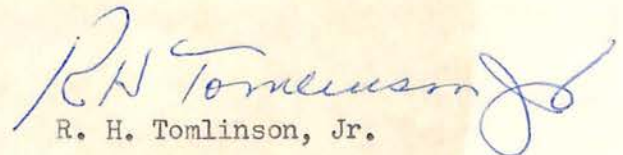 RH Tomlinson Jr
R. H. Tomlinson, Jr.